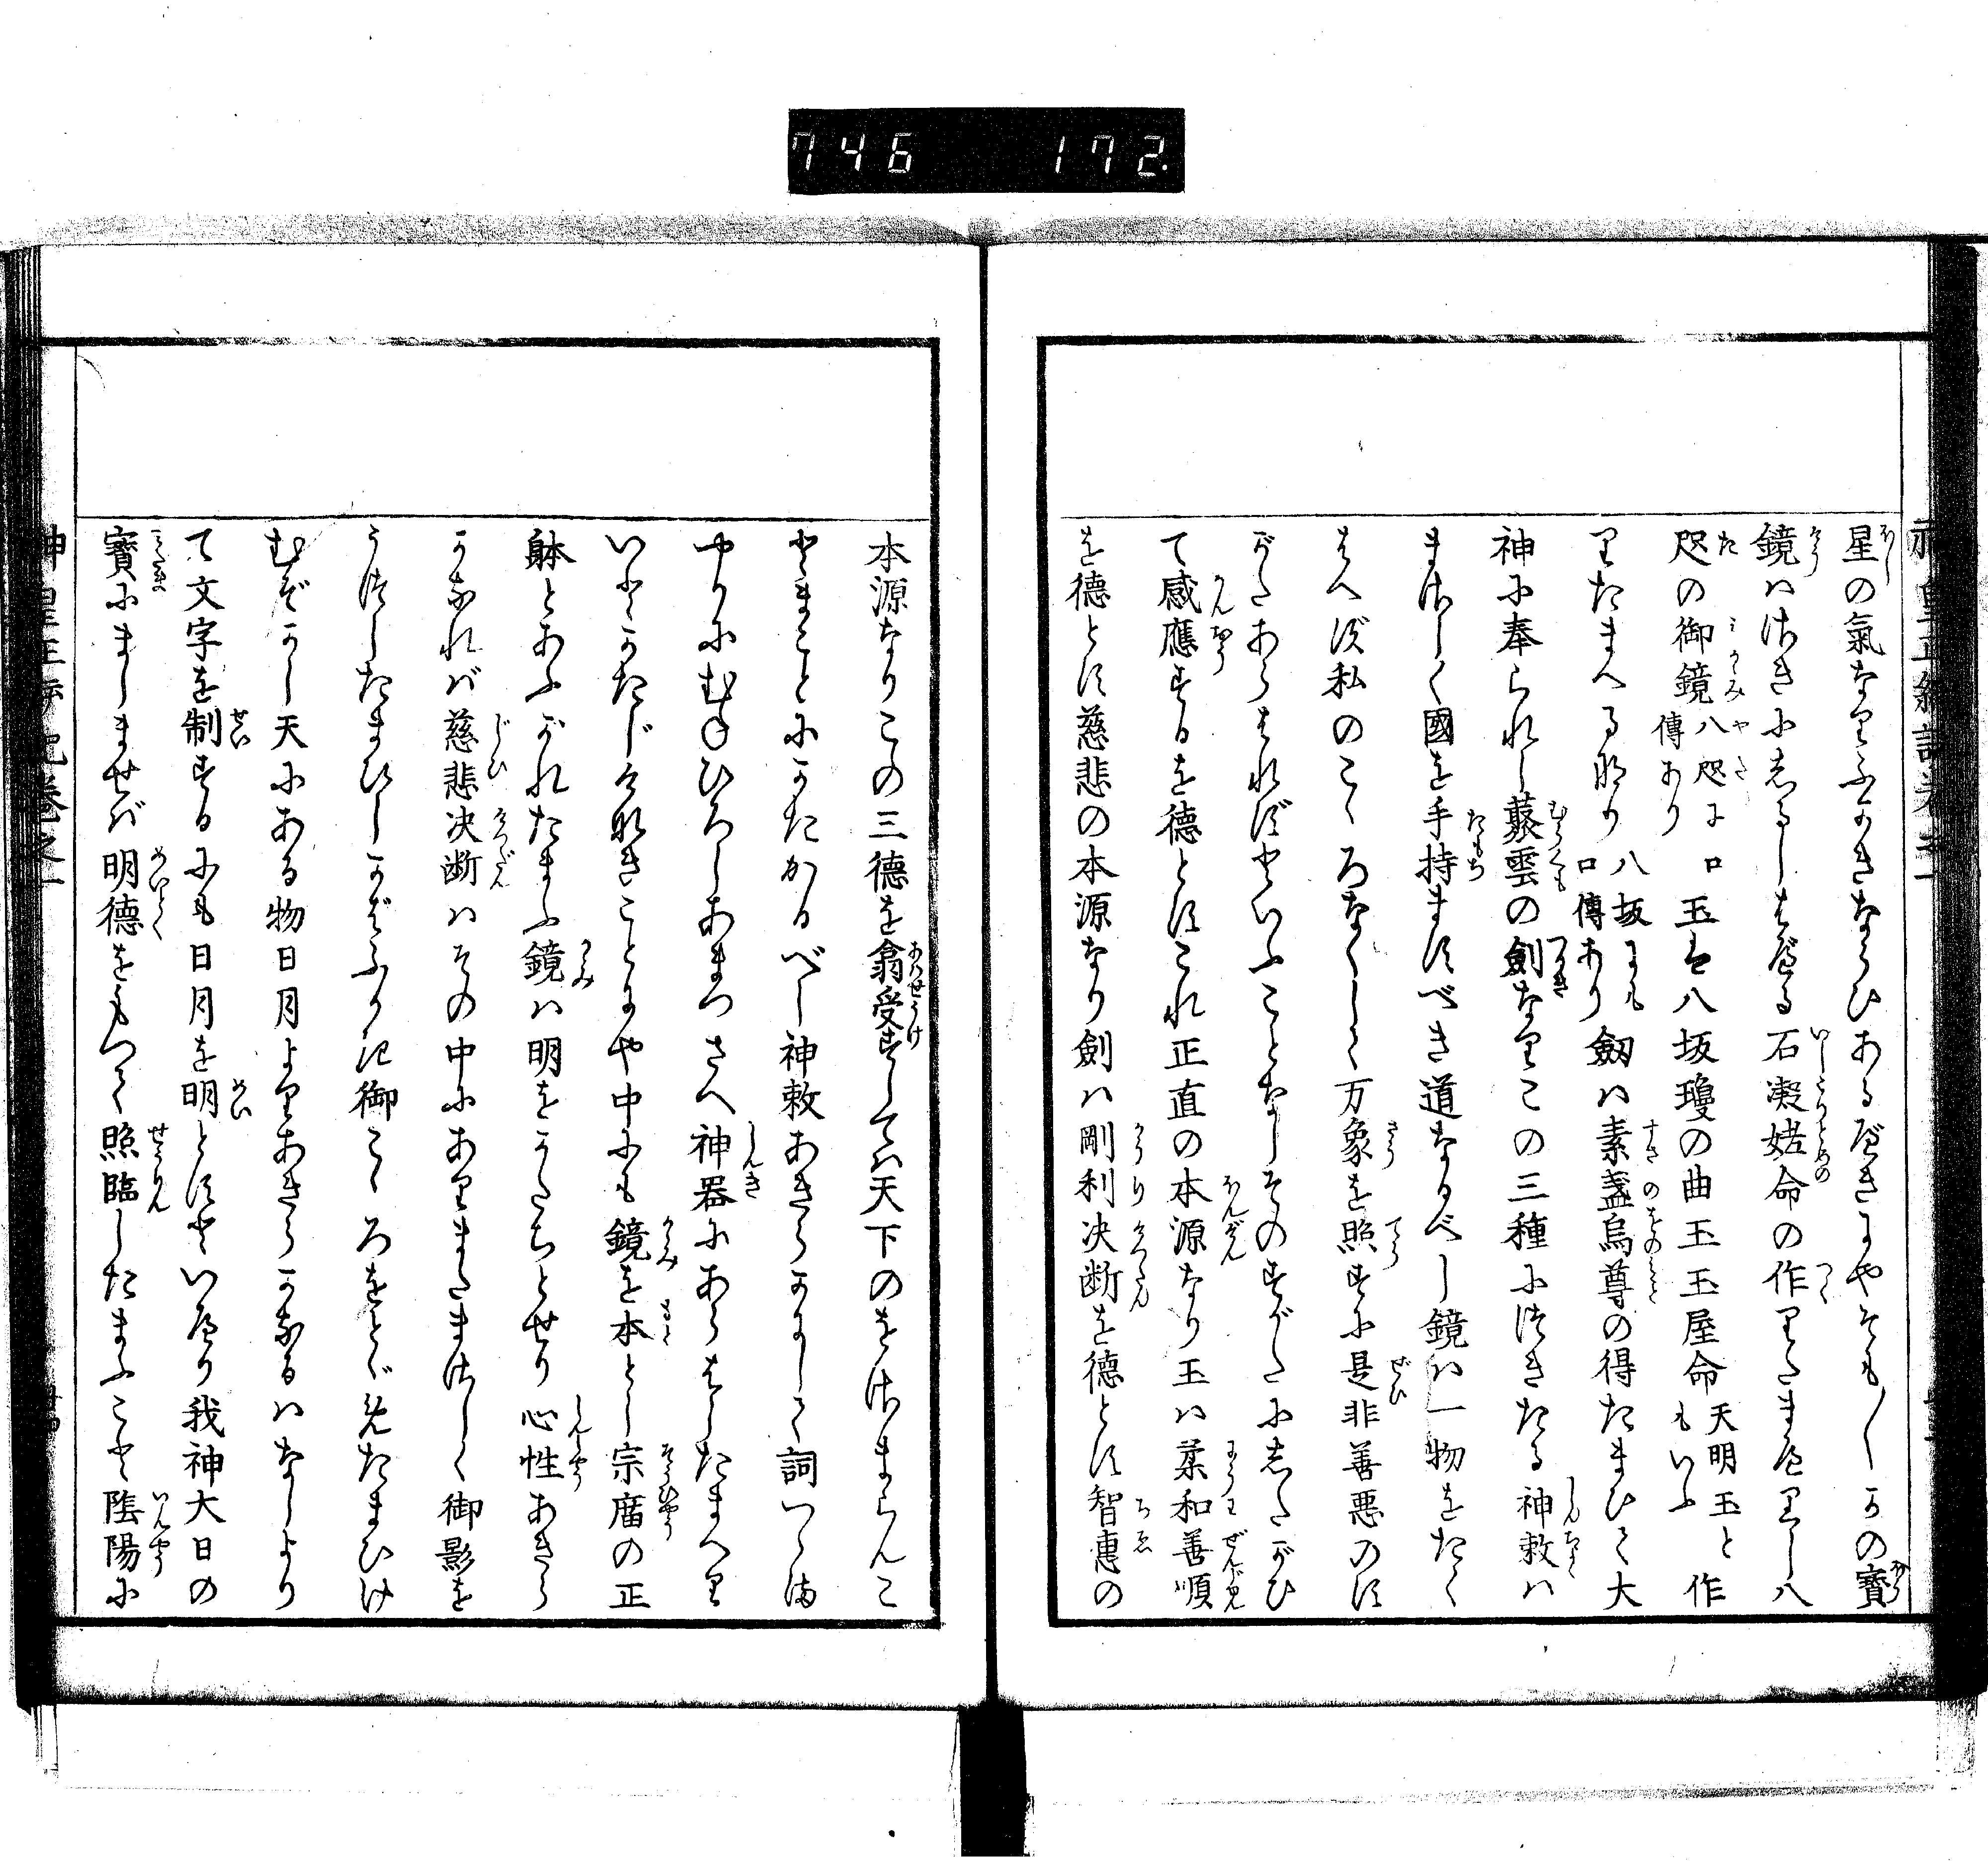 746 172
星の氣なりふかきならひあるべきにやそも〳〵かの寶
鏡ハさきにしるしはべる石凝姥命の作りたまへりし八
咫の御鏡八咫に口傳あり玉ハ八坂瓊の曲玉玉屋命天明玉ともいふ作
りたまへるなり八坂にも口傳あり劔ハ素盞烏尊の得たまひて大
神に奉られし藂雲の劍なりこの三種につきたる神敕ハ
まさしく國を手持ますべき道なるべし鏡ハ一物をたく
はへず私のこゝろなくして万象を照すに是非善悪のす
がたあらはれずといふことなしそのすがたにしたがひ
て感應するを德とすこれ正直の本源なり玉ハ柔和善順
を德とす慈悲の本源なり劍ハ剛利决断を德とす智惠の
本源なりこの三德を翕受ずしてハ天下のをさまらんこ
とまことにかたかるべし神敕あきらかにして詞つゞま
やかにむねひろしあまつさへ神器にあらはしたまへり
いとかたじけなきことにや中にも鏡を本とし宗廟の正
躰とあふがれたまふ鏡ハ明をかたちとせり心性あきら
かなれバ慈悲决断ハその中にありまたまさしく御影を
うつしたまひしかバふかき御こゝろをとゞめたまひけ
むぞかし天にある物日月よりあきらかなるハなしより
て文字を制するにも日月を明とすといへり我神大日の
寶にましませバ明德をもつて照臨したまふこと陰陽に